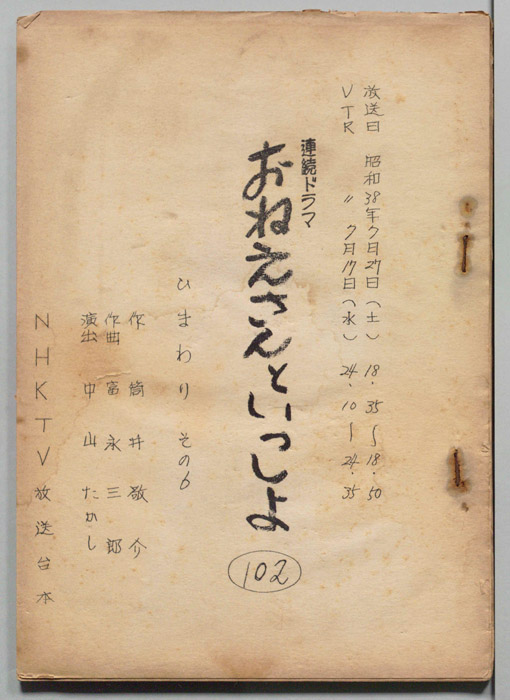 放送日 昭和38年7月27日(土) 18.35〜18.50
VTR 〃 7月17日(水) 24.10〜24.35
連続ドラマ
おねえさんといっしょ
102
ひまわり その6
作 筒井敬介
作曲 富永三郎
演出 中山たかし
NHKTV放送台本